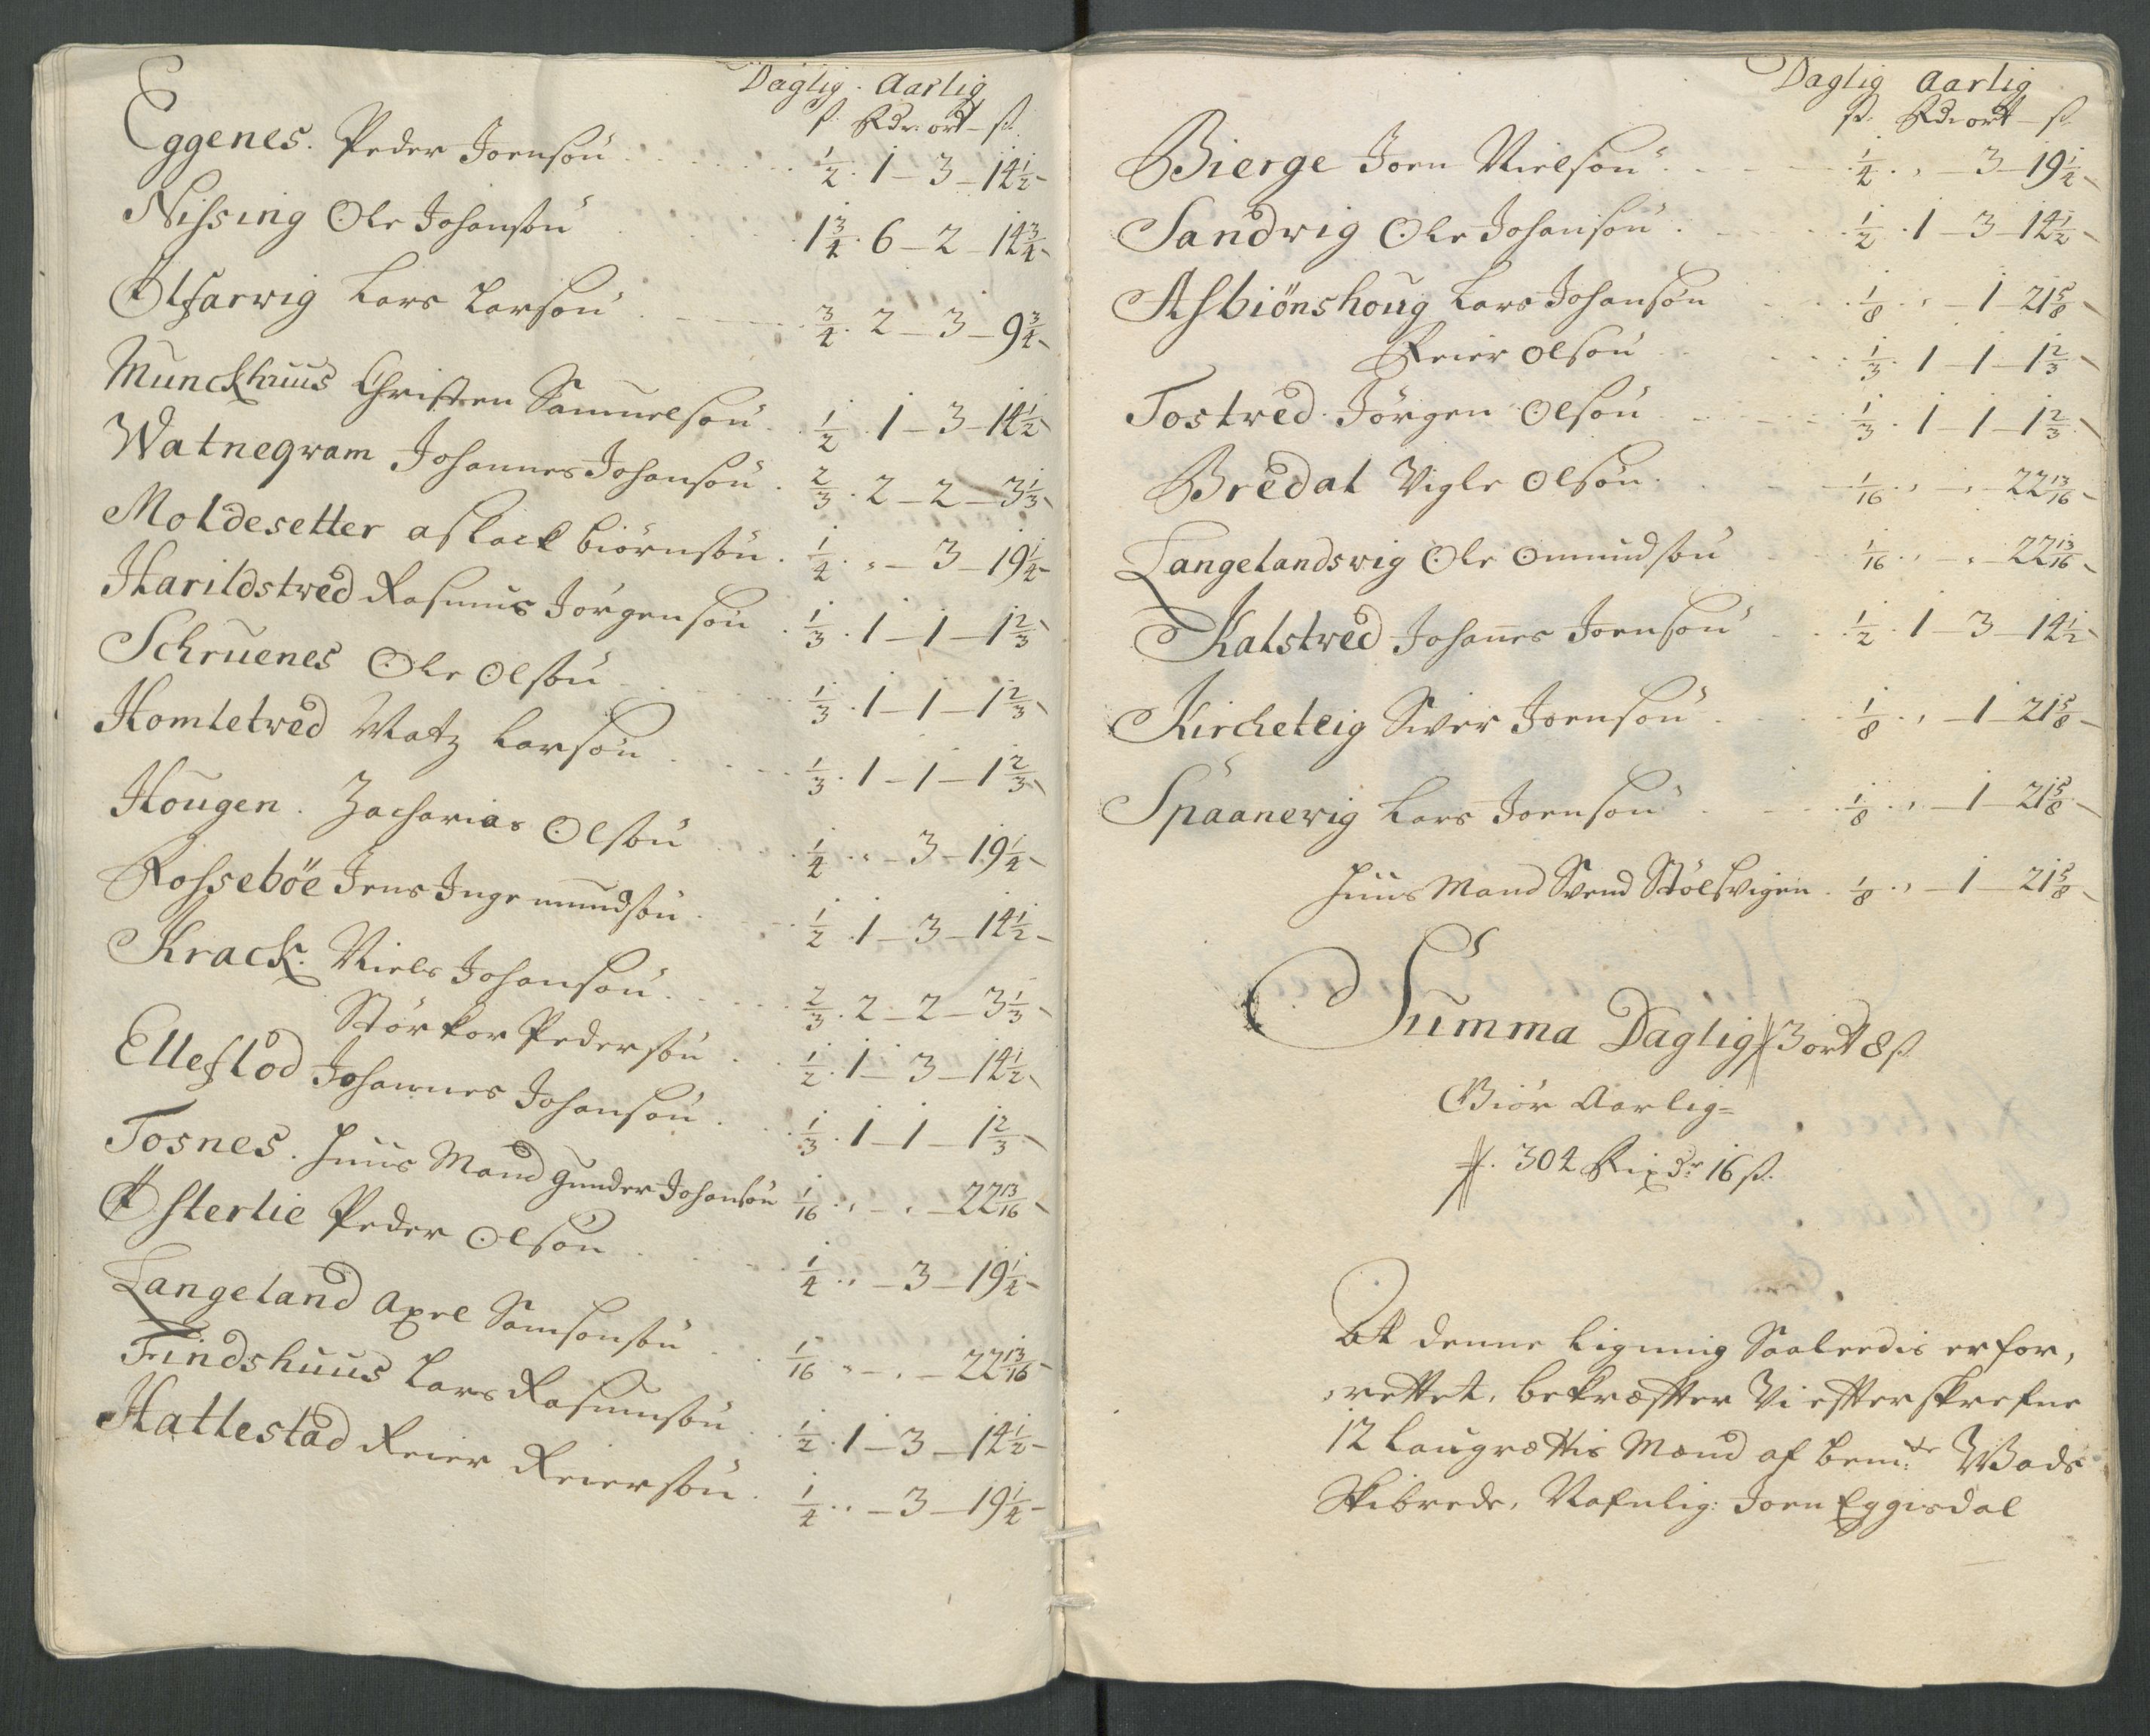 Daglig. Aarlig
ß. Rdr. ort - ß.
Eggenes. Peder Joensøn ½. 1 - 3 - 14½ -
Nissing Ole Johansøn 1¾. 6 - 2 - 14¾ -
Ølfarvig Lars Larsøn ¾. 2 - 3 - 9¾ -
Munckhuus Christen Samuelsøn ½. 1 - 3 - 14½
Watnegram Johannes Johansøn ⅔. 2 - 2 - 3⅓
Moldesetter Aslack Biørnsøn. ¼. „ - 3 - 19¼ -
Harildstved Rasmus Jørgensøn ⅓. 1 - 1 - 1⅔
Schruenes Ole Olsøn ⅓. 1 - 1 - 1⅔
Homletved Matz Larsøn ⅓. 1 - 1 - 1⅔
Hougen. Zacharias Olsøn ¼. „ - 3 - 19¼ -
Rossebøe Jens Ingemundsøn ½. 1 - 3 - 14½ -
Krack. Niels Johansøn. ⅔. 2 - 2 - 3⅓ -
Størkor Pedersøn ½. 1 - 3 - 14½
Elleflod Johannes Johansøn. ⅓. 1 - 1 - 1⅔
Tosnes. Huus Mand Gunder Johansøn 1/16. „ - „ - 22 13/16
Østerlie Peder Olsøn ¼. „ - 3 - 19¼ -
Langeland Axel Samsonsøn 1/16 „ - „ - 22 13/16 -
Findshuus Lars Rasmusøn ½. 1 - 3 - 14½ -
Hattestad Reier Reiersøn. ¼. „ - 3 - 19¼ -
Daglig Aarlig
ß. Rdr ort - ß.
Bierge Joen Nielsøn ¼. „ - 3 - 19¼
Sandvig Ole Johansøn. ½. 1 - 3 - 14½
Asbiønshoug Lars Johansøn ⅛. „ - 1 - 21⅝
Reier Olsøn ⅓. 1 - 1 - 1⅔
Tostved. Jørgen Olsøn ⅓. 1 - 1 - 1⅔
Bredal Vigle Olsøn. 1/16. „ - „ 22 13/16
Langelandsvig Ole Omundsøn 1/16. „ - „ 22 13/16
Kalstved Johanes Joensøn ½. 1 - 3 - 14½
Kircheteig Siver Joensøn ⅛. „ - 1 - 21⅝
Spaanevig Lars Joensøn ⅛. „ - 1 - 21⅝
Huus Mand Svend Stølsvigen. ⅛. „ - 1 - 21⅝
Summa Daglig 3 ort 8 ß
Giør Aarlig=
304 Rixdr 16 ß.
At denne Ligning Saaleedis er for,
rettet, bekræfter Vi efterskrefne
12 Laugrættis Mænd af bemte Wads
Skibrede, Nafnlig: Joen Eggisdal